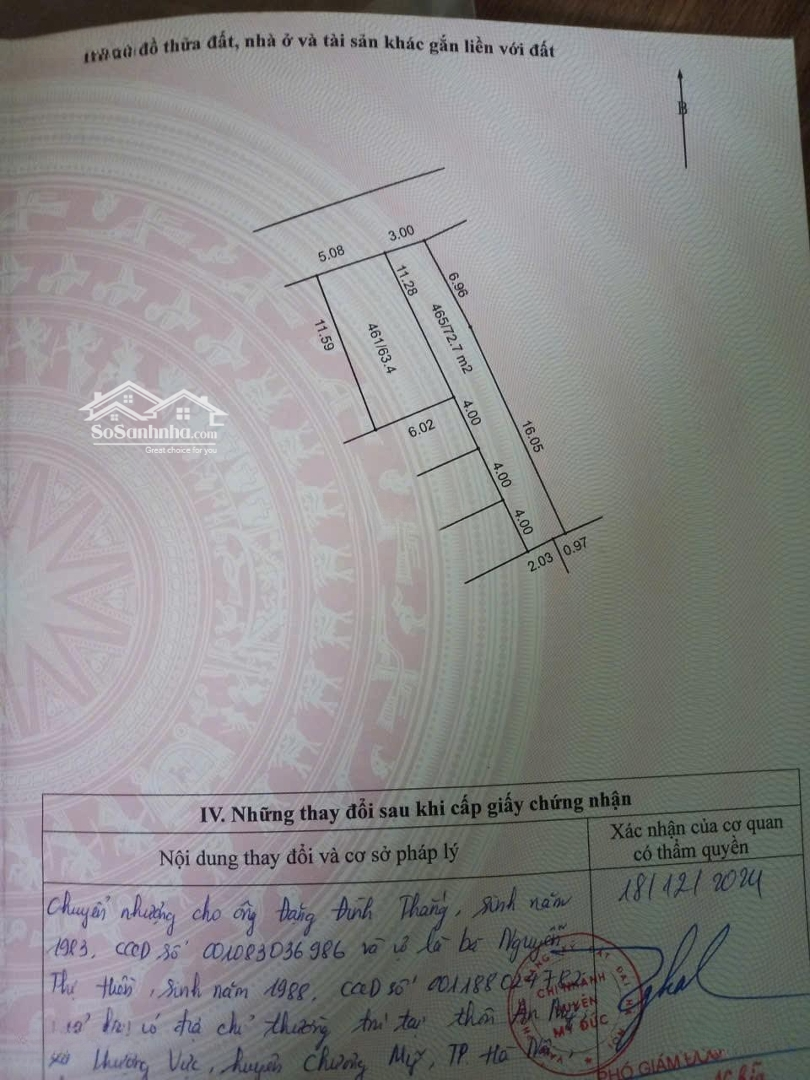 đồ thửa đất, nhà ở và tài sản khác gắn liền với đất
B
5.08
3.00
11.28
6.96
465/72.7 m2
11.59
461/63.4
4.00
6.02
16.05
4.00
4.00
2.03
0.97
SoSanhnha.com
Great choice for you
IV. Những thay đổi sau khi cấp giấy chứng nhận
Nội dung thay đổi và cơ sở pháp lý
Xác nhận của cơ quan
có thẩm quyền
18/12/2024
Chuyển nhượng cho ông Đặng Đình Thắng, sinh năm
1983, CCCD số 001083036986 và vợ là bà Nguyễn
sinh năm 1988, CCCD số
địa chỉ thường trú tại thôn An
huyện Chương Mỹ, TP. Hà Nội
CHI NHÁNH
HUYỆN
MỸ ĐỨC
PHÓ GIÁM ĐỐC